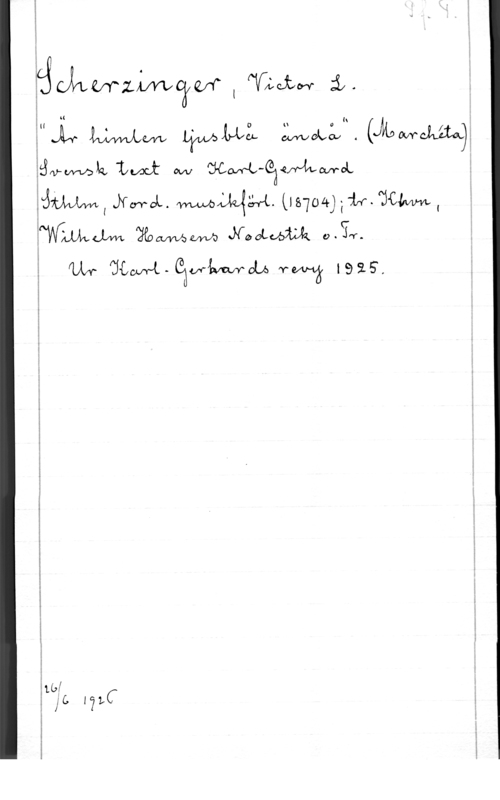 Scherzinger, Victor L.
"Är himlen ljusblå ändå". (Marchéta)
Svensk text av Karl-Gerhard
Sthlm, Nord. musikförl. (18704); tr. Khvn,
Wilhelm Hansens Nodestik o. Tr.
Ur Karl-Gerhards revy 1925.
26/6 192C